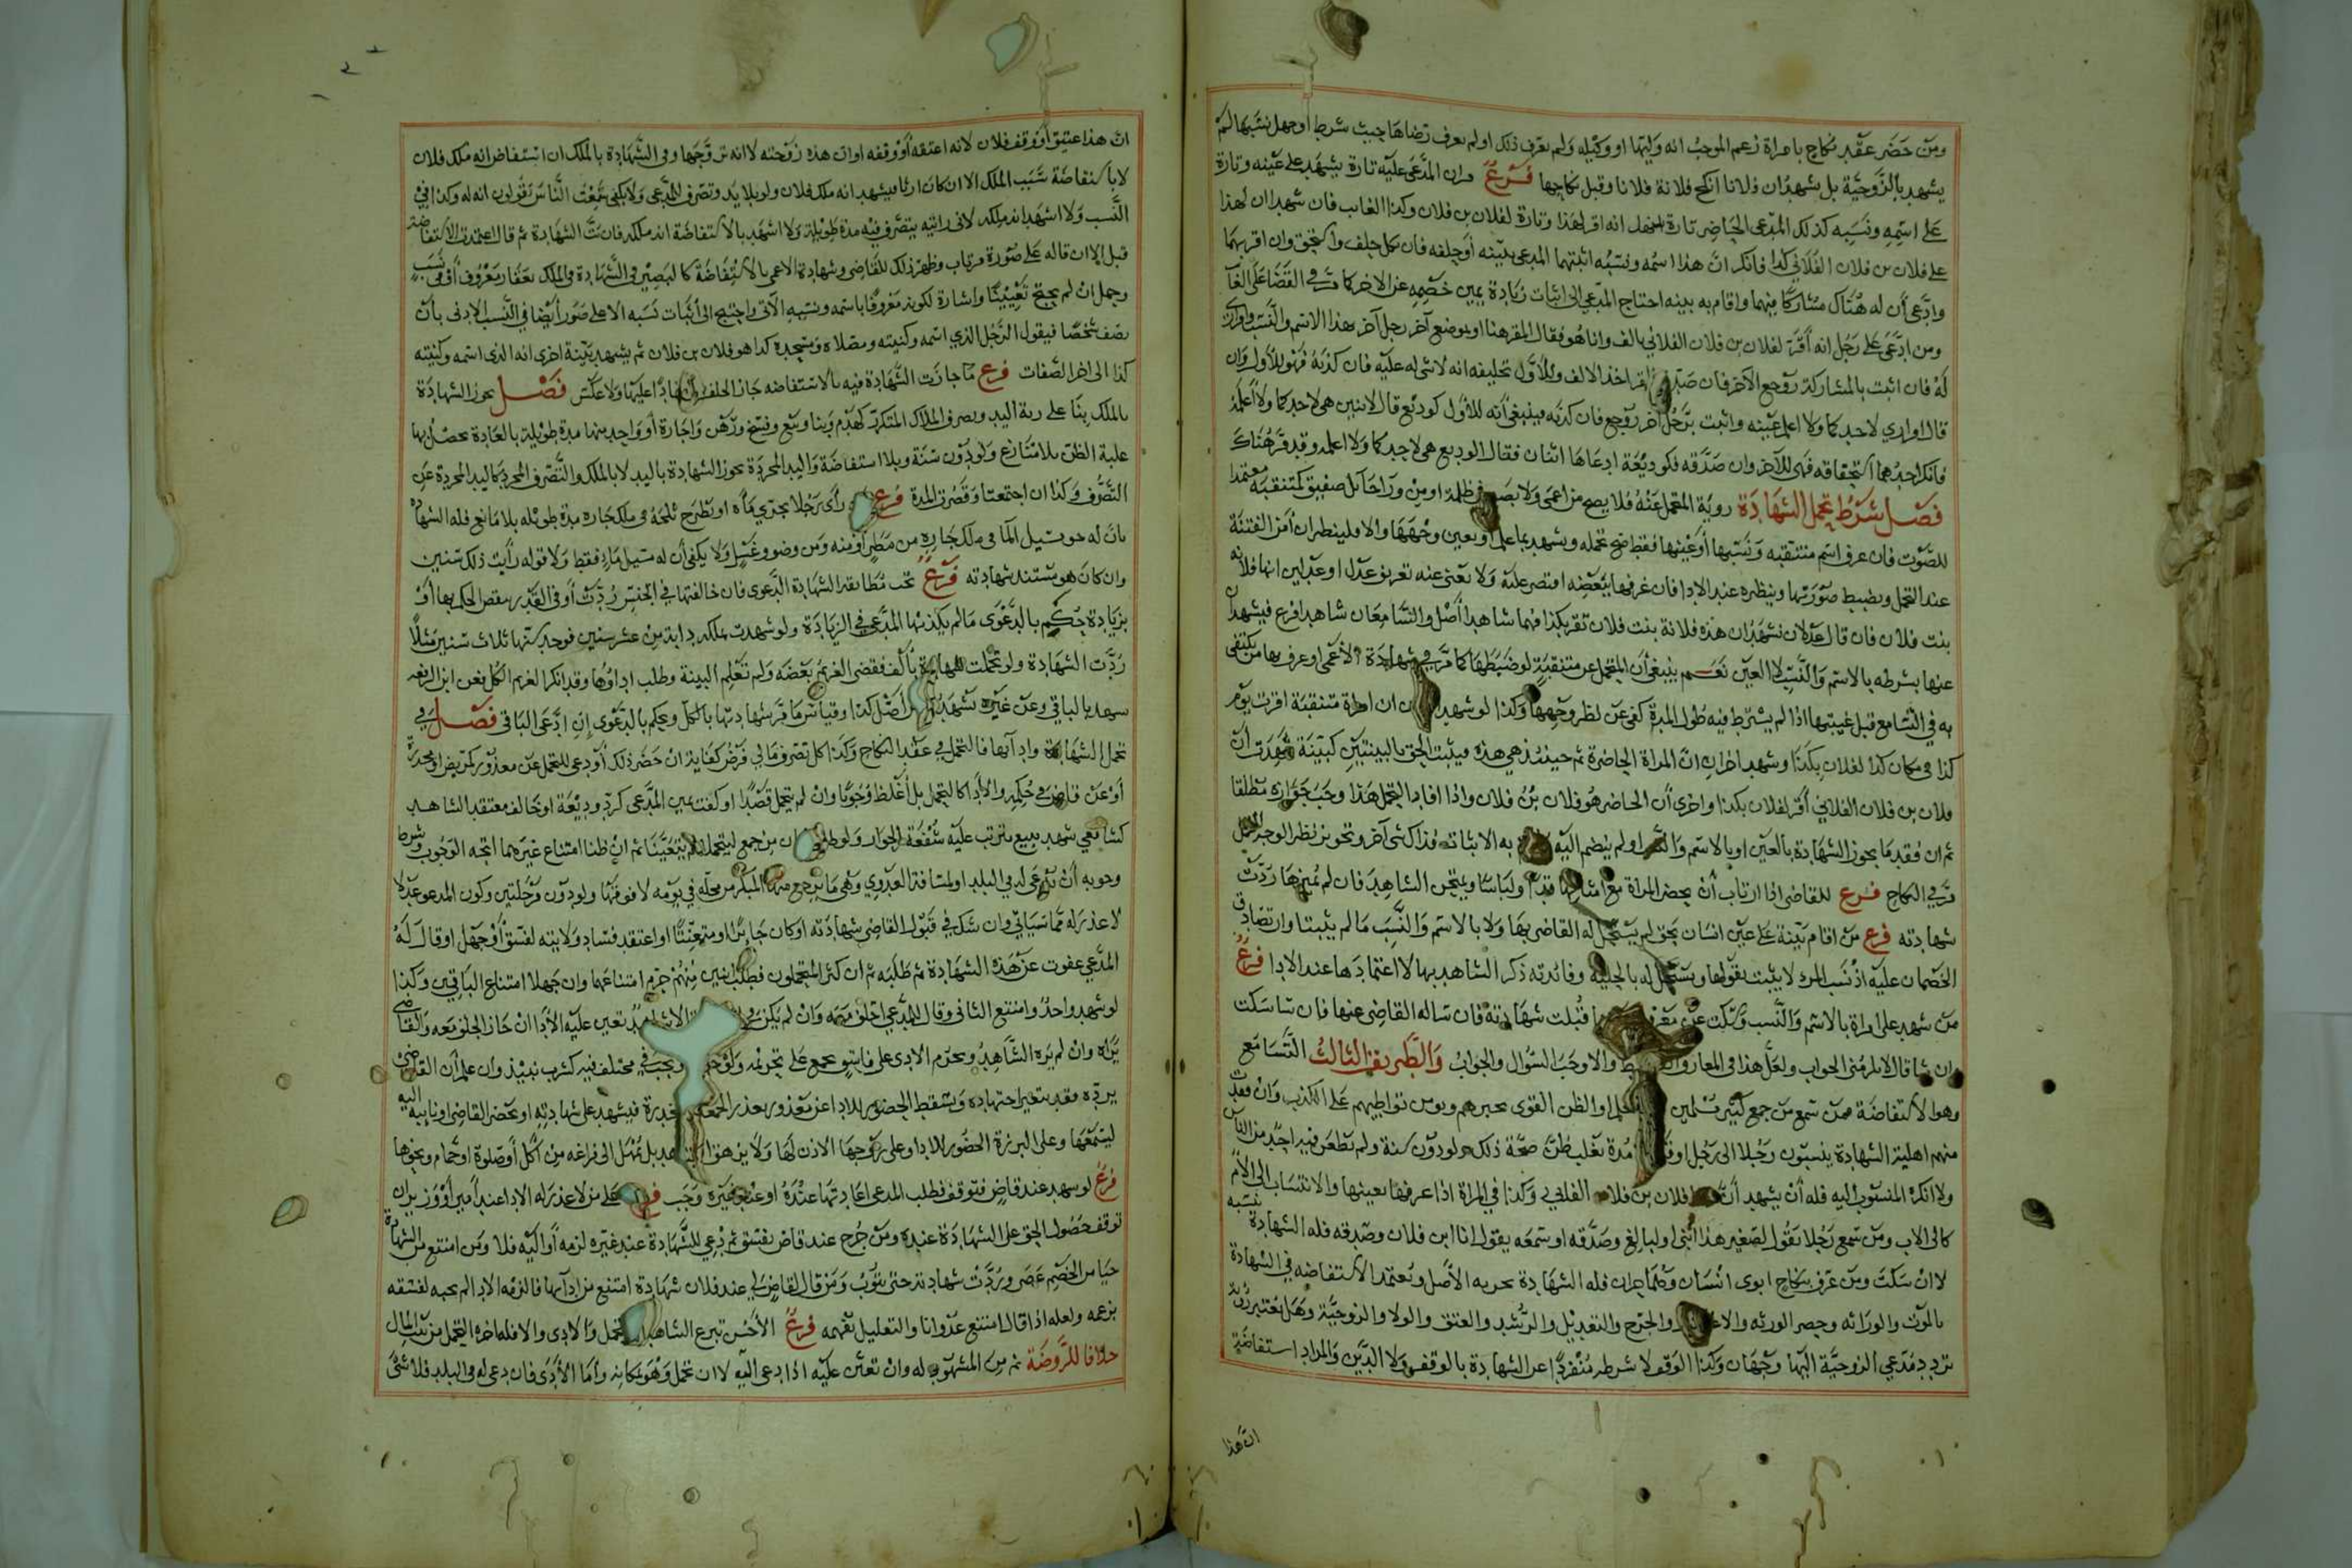 ومن حضر عقد نكاح بامراة زعم الموجب انه وليها او وكيله ولم يعرف ذلك او لم يعرف رضاها حيث شرط او جهل نسبها لم
يشهد بالزوجية بل يشهد ان فلانا انكح فلانة فلانا وقبل نكاحها فرع المدعى عليه تارة يشهد على عينه وتارة
على اسمه ونسبه كذلك المدعى الحاضر تارة انه اقر لهذا وتارة لفلان بن فلان وكذا الغايب فان شهد ان لهذا
على فلان بن فلان الفلاني كذا فانكر ان هذا اسمه ونسبه اثبتهما المدعى ببينه او حلفه فان نكل حلف واستحق وان اقر بهما
وادعى ان له هناك مشاركا فيهما واقام به بينه احتاج المدعي الى اثبات زيادة يميز خصمه عن الاخر كما مر في القضا على الغا
ومن ادعى على رجل انه اقر لفلان بن فلان الفلاني بالف وانا هو فقال المقر هنا او بموضع آخر رجل آخر بهذا الاسم والنسب
له فان اثبت بالمشاركة روجع الآخر فان اخذ الالف وللاول تحليفه انه لا شى له عليه فان كذبه فهو للاول وان
قال اوادي لاحدكما ولا اعلم عينه واثبت برجل آخر روجع فان كذبه فينبغي انه للاول كوديع قال لاثنين هي لاحدكما ولا اعلمه
فانكر احدهما استحقاقه فهي للآخر وان صدقه فكوديعة ادعاها اثنان فقال الوديع هي لاحدكما ولا اعلمه وقد مر هناك
فصل شرط تحمل الشهادة روية المتحمل عنه فلا يصح من اعمى ولا بصير في ظلمة او من ورا حائل صفيق كمتنقبة معتمدا
للصوت فان عرف اسم متنقبه ونسبها او عينها فقط صح تحمله ويشهد بما علم او بعين وجهها والا فلينظر ان امن الفتنة
عند التحمل ويضبط صورتها وينظره عند الادا فان عرفها ببعضه اقتصر عليه ولا يغنى عنه تعريف عدل او عدلين انها فلانه
بنت فلان فان قال عدلان نشهد ان هذه فلانة بنت فلان تقر بكذا فهما شاهدا اصل والسامعان شاهدا فرع فيشهدان
عنها بشرطه بالاسم والنسب لا العين نعم ينبغي ان المتحمل عن متنقبة لو ضبطها كما مر في شهادة الاعمى او عرف بها من يكتفى
به في التسامع قبل غيبتها اذا لم يشترط فيه طول المدة كفى عن نظر وجهها وكذا لو شهد ان امراة متنقبة اقرت يوم
كذا في مكان كذا لفلان بكذا وشهد اخران ان المراة الحاضرة ثم حينئذ هي هذه فيثبت الحق بالبينتين كبينة شهدت ان
فلان بن فلان الفلاني اقر لفلان بكذا واخرى ان الحاضر هو فلان بن فلان واذا افاد التحمل هذا وجب جوازه مطلقا
ثم ان فقد ما يجوز الشهادة بالعين او بالاسم والنسب او لم ينضم اليه به الا بثاته فذا كشى آخر وتجويز نظر الوجه
مر في النكاح فرع للقاضى اذا ارتاب ان يحضر المراة مع قدا ولباسا ويمتحن الشاهد فان لم يميزها ردت
شهادته فرع من اقام بينة على عين انسان بحق لم يسجل له القاضى بها ولا بالاسم والنسب ما لم يثبتا وان تصادق
الخصمان عليه اذ نسب المرء لا يثبت بقولها ويسجل له بالحلية وفائدته ذكر الشاهد بها لا اعتمادها عند الادا فرع
من شهد على امراة بالاسم والنسب وسكت عن قبلت شهادته فان ساله القاضى عنها فان شا سكت
وان شا قال لا يلزمني الجواب ولعل هذا في المعا والا وجب السؤال والجواب والطريق الثالث التسامع
وهو الاستفاضة فمن سمع من جمع كثير مسلمين العلم او الظن القوى بخبرهم ويومن تواطيهم على الكذب وان فقدت
منهم اهلية الشهادة ينسبون رجلا الى رجل او مدة تغلب ظن صحة ذلك ولو دون سنة ولم يطعن فيه احد من الناس
ولا انكره المنسوب اليه فله ان يشهد ان فلان بن فلان الفلاني وكذا في المراة اذا عرفها بعينها والانتساب الى الام
كالى الاب ومن سمع رجلا يقول لصغير هذا ابنى او لبالغ وصدقه او سمعه يقول انا ابن فلان وصدقه فله الشهادة بنسبه
لا ان سكت ومن عرف نكاح ابوى انسان وهما حران فله الشهادة بحريه الاصل ويعتمد الاستفاضه في الشهادة
بالموت والوراثه وحصر الورثه والا والجرح والتعديل والرشد والعتق والولا والزوجية وهل يعتبر رؤية
تردد مدعي الزوجية اليها وجهان وكذا الوقف لا شرطه منفردا عن الشهادة بالوقف ولا الدين والمراد استفاضة
ان هذا
ان هذا عتيق او وقف فلان لا انه اعتقه او وقفه او ان هذه زوجته لا انه تزوجها وفي الشهادة بالملك ان استفاض انه ملك فلان
لا باستفاضة سبب الملك الا ان كان ارثا فيشهد انه ملك فلان ولو بلا يد وتصرف المدعي ولا يكفي سمعت الناس يقولون انه له وكذا في
النسب ولا اشهد انه ملكه لاني رايته يتصرف فيه مدة طويلة ولا اشهد بالاستفاضة انه ملكه فان بت الشهادة ثم قال اعتمدت الاستفاضة
قبل الا ان قاله على صورة مرتاب وظهر ذلك للقاضى وشهادة الاعمى بالاستفاضة كالبصير في الشهادة في الملك بعقار معروف او في نسب
وحمل ان لم يحتج تعيينا واشارة لكونه معروفا باسمه ونسبه الآتى واحتيج الى اثبات نسبه الاعلى صور ايضا في النسب الادنى بان
يصف شخصا فيقول الرجل الذي اسمه وكنيته ومصلاه ومسجده كذا هو فلان بن فلان ثم يشهد بينة اخرى انه الذى اسمه وكنيته
كذا الى اخر الصفات فرع ما جازت الشهادة فيه بالاستفاضه جاز الحلف عليها ولا عكس فصل يجوز الشهادة
بالملك بنا على رية اليد وتصرف الملاك المتكرر كهدم وبنا وبيع وفسخ ورهن واجارة او واحد منها مدة طويلة بالعادة يحصل بها
غلبة الظن بلا منازع ولو دون سنة وبلا استفاضة واليد المجردة يجوز الشهادة باليد لا بالملك والتصرف المجرد كاليد المجردة عن
التصرف وكذا ان اجتمعتا وقصرت المدة فرع راى رجلا يجرى ماه او يطرح ثلجه في ملك جاره مدة طويله بلا مانع فله الشهادة
بان له حق مسيل الما في ملك جاره من مطر او منه ومن وضو وغسل ولا يكفي ان له مسيل ماء فقط ولا قوله رايت ذلك سنين
وان كان هو مستند شهادته فرع تجب مطابقة الشهادة الدعوى فان خالفتها في الجنس ردت او في القدر بنقص الحكم بها او
بزيادة حكم بالدعوى ما لم يكذبها المدعي في الزيادة ولو شهدت بملكه دابة من عشر سنين فوجد سنها ثلاث سنين مثلا
ردت الشهادة ولو تحملت شهادة بالف فقضى الغريم بعضه ولم تعلم البينة وطلب اداؤها وقد انكر الغريم الكل فعن ابن الرفعه
تشهد بالباقي وعن غيره تشهد اصل كذا وقياس ما مر شهادتها بالكل ويحكم بالدعوى ان ادعى الباقى فصل في
تحمل الشهادة وادآئها فالتحمل في عقد النكاح وكذا كل تصرف مالي فرض كفاية ان حضر ذلك او دعى للتحمل عن معذور كمريض او مخدرة
او عن قاض في حكمه والأدا كالتحمل بل اغلظ وجوبا وان لم يتحمل قصدا او كفت يمين المدعي كرد وديعة او خالف معتقد الشاهد
كشافعي شهد ببيع يترتب عليه شفعة الجوار ولو طلب من جمع ليتحملا لم يتعينا ثم ان ظنا امتناع غيرهما اتجه الوجوب وشرط
وجوبه ان يدعى لدى البلد او لمسافة العدوى وهي ما يرجع منها المبكر من محله في يومه لا فوقها ولو دون مرحلتين وكون المدعو عدلا
لا عذر له مما سياتي وان شك في قبول القاضى شهادته او كان جائرا او متعنتا او اعتقد فساد ولايته لفسق او جهل او قال له
المدعي عفوت عن هذه الشهادة ثم طلبه ثم ان كثر المتحملون فطلب اثنين منهم حرم امتناعهما وان جهلا امتناع الباقين وكذا
لو شهد واحد وامتنع الثانى وقال للمدعي احلف معه وان لم يكن تعين عليه الأدا ان جاز الحلف معه والقاضى
يراه وان لم يره الشاهد ويحرم الادى على فاسق مجمع على تحريمه ويجب في مختلف فيه كشرب نبيذ وان علم ان القاضى
يرده فقد يتغير اجتهاده ويسقط الحضور للادا عن معذور بعذر الجمعة مخدرة فيشهد على شهادته او يحضر القاضى او نايبه اليه
ليسمعها وعلى البرزة الحضور للادا وعلى زوجها الاذن لها ولا يرهق الشاهد بل يمهل الى فراغه من اكل او صلوة او حمام ونحوها
فرع لو شهد عند قاض فتوقف فطلب المدعي اعادتها عنده او عند غيره وجب على من لا عذر له الادا عند امير او وزير ان
توقف حصول الحق على الشهادة عنده ومن جرح عند قاض بفسق ثم دعي للشهادة عند غيره لزمه او اليه فلا ومن امتنع من الشهادة
حيا من الخصم عصى وردت شهادته حتى يتوب ومن قال لقاض لي عند فلان شهادة امتنع من ادآئها فالزمه الادا لم يجبه لفسقه
بزعمه ولعله اذا قال امتنع عدوانا والتعليل يفهمه فرع الأحسن تبرع الشاهد والادى والا فله اخذ التحمل من بيت المال
خلافا للروضة ثم من المشهود له وان تعين عليه اذا دعى اليه لا ان تحمل وهو بمكانه واما الأدى فان دعى له في البلد فلا شى